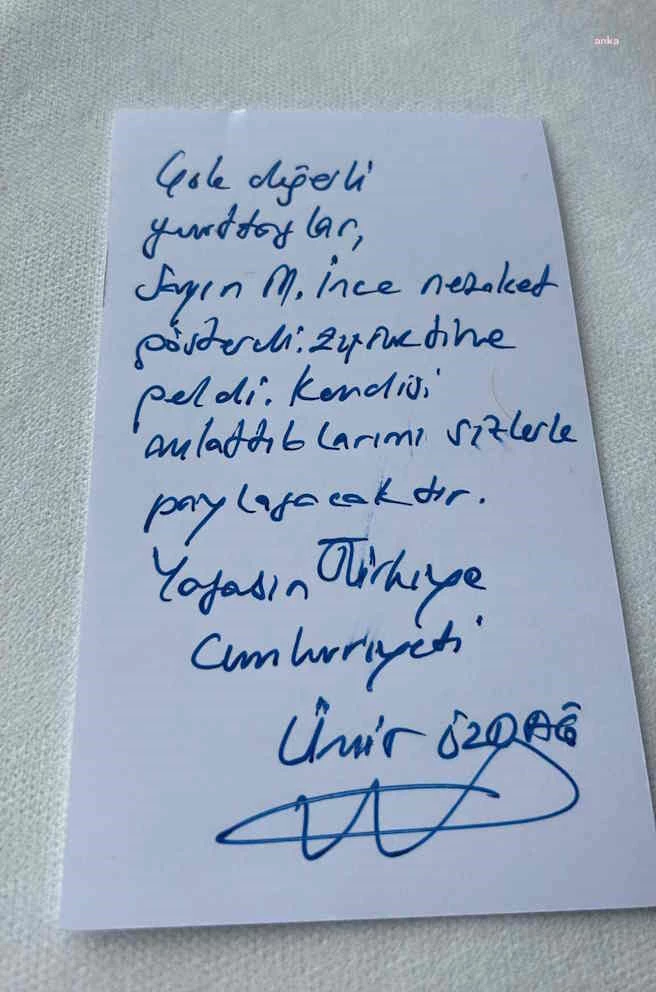 anka
Çok değerli
yurttaşlar,
Sayın M. İnce nezaket
gösterdi. Ziyaretime
geldi. Kendisi
anlattıklarımı sizlerle
paylaşacaktır.
Yaşasın Türkiye
Cumhuriyeti
Ümit ÖZDAĞ